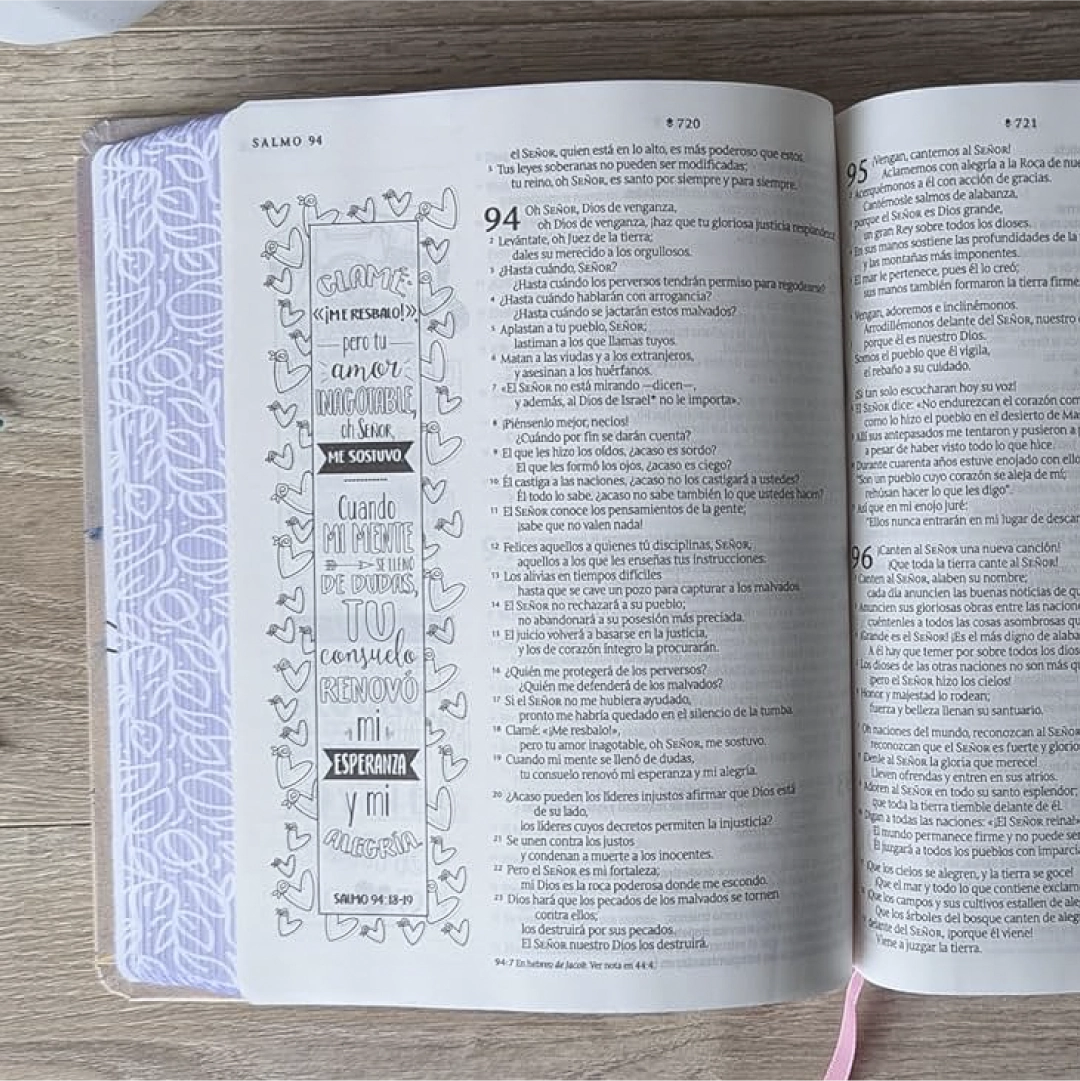 SALMO 94
720
CLAMÉ:
«¡ME RESBALO!»,
pero tu
amor
INAGOTABLE,
oh SEÑOR,
ME SOSTUVO
Cuando
MI MENTE
SE LLENÓ
DE DUDAS,
TU
consuelo
RENOVÓ
mi
ESPERANZA
y mi
ALEGRÍA
SALMO 94:18-19
el SEÑOR, quien está en lo alto, es más poderoso que estos.
5 Tus leyes soberanas no pueden ser modificadas;
tu reino, oh SEÑOR, es santo por siempre y para siempre.
94 Oh SEÑOR, Dios de venganza,
oh Dios de venganza, ¡haz que tu gloriosa justicia resplandezca
2 Levántate, oh Juez de la tierra;
dales su merecido a los orgullosos.
3 ¿Hasta cuándo, SEÑOR?
¿Hasta cuándo los perversos tendrán permiso para regodearse?
4 ¿Hasta cuándo hablarán con arrogancia?
¿Hasta cuándo se jactarán estos malvados?
5 Aplastan a tu pueblo, SEÑOR;
lastiman a los que llamas tuyos.
6 Matan a las viudas y a los extranjeros,
y asesinan a los huérfanos.
7 «El SEÑOR no está mirando —dicen—,
y además, al Dios de Israel* no le importa».
8 ¡Piénsenlo mejor, necios!
¿Cuándo por fin se darán cuenta?
9 El que les hizo los oídos, ¿acaso es sordo?
El que les formó los ojos, ¿acaso es ciego?
10 Él castiga a las naciones, ¿acaso no los castigará a ustedes?
Él todo lo sabe, ¿acaso no sabe también lo que ustedes hacen?
11 El SEÑOR conoce los pensamientos de la gente;
¡sabe que no valen nada!
12 Felices aquellos a quienes tú disciplinas, SEÑOR,
aquellos a los que les enseñas tus instrucciones.
13 Los alivias en tiempos difíciles
hasta que se cave un pozo para capturar a los malvados.
14 El SEÑOR no rechazará a su pueblo;
no abandonará a su posesión más preciada.
15 El juicio volverá a basarse en la justicia,
y los de corazón íntegro la procurarán.
16 ¿Quién me protegerá de los perversos?
¿Quién me defenderá de los malvados?
17 Si el SEÑOR no me hubiera ayudado,
pronto me habría quedado en el silencio de la tumba.
18 Clamé: «¡Me resbalo!»,
pero tu amor inagotable, oh SEÑOR, me sostuvo.
19 Cuando mi mente se llenó de dudas,
tu consuelo renovó mi esperanza y mi alegría.
20 ¿Acaso pueden los líderes injustos afirmar que Dios está
de su lado,
los líderes cuyos decretos permiten la injusticia?
21 Se unen contra los justos
y condenan a muerte a los inocentes.
22 Pero el SEÑOR es mi fortaleza;
mi Dios es la roca poderosa donde me escondo.
23 Dios hará que los pecados de los malvados se tornen
contra ellos;
los destruirá por sus pecados.
El SEÑOR nuestro Dios los destruirá.
94:7 En hebreo de Jacob. Ver nota en 44:4.
721
95 ¡Vengan, cantemos al SEÑOR!
Aclamemos con alegría a la Roca de nue
2 Acerquémonos a él con acción de gracias.
Cantémosle salmos de alabanza,
porque el SEÑOR es Dios grande,
un gran Rey sobre todos los dioses.
En sus manos sostiene las profundidades de la
y las montañas más imponentes.
El mar le pertenece, pues él lo creó;
sus manos también formaron la tierra firme
Vengan, adoremos e inclinémonos.
Arrodillémonos delante del SEÑOR, nuestro
porque él es nuestro Dios.
Somos el pueblo que él vigila,
el rebaño a su cuidado.
¡Si tan solo escucharan hoy su voz!
El SEÑOR dice: «No endurezcan el corazón com
como lo hizo el pueblo en el desierto de Ma
Allí sus antepasados me tentaron y pusieron a p
a pesar de haber visto todo lo que hice.
Durante cuarenta años estuve enojado con ello
"Son un pueblo cuyo corazón se aleja de mí;
rehúsan hacer lo que les digo".
Así que en mi enojo juré:
"Ellos nunca entrarán en mi lugar de descan
96 ¡Canten al SEÑOR una nueva canción!
¡Que toda la tierra cante al SEÑOR!
Canten al SEÑOR, alaben su nombre;
cada día anuncien las buenas noticias de qu
Anuncien sus gloriosas obras entre las nacion
cuéntenles a todos las cosas asombrosas qu
¡Grande es el SEÑOR! ¡Es el más digno de alaba
A él hay que temer por sobre todos los dios
Los dioses de las otras naciones no son más q
pero el SEÑOR hizo los cielos!
Honor y majestad lo rodean;
fuerza y belleza llenan su santuario.
Oh naciones del mundo, reconozcan al SEÑOR
reconozcan que el SEÑOR es fuerte y glorio
¡Denle al SEÑOR la gloria que merece!
Lleven ofrendas y entren en sus atrios.
Adoren al SEÑOR en todo su santo esplendor;
que toda la tierra tiemble delante de él.
Digan a todas las naciones: «¡El SEÑOR reina!»
El mundo permanece firme y no puede ser
Él juzgará a todos los pueblos con imparcia
¡Que los cielos se alegren, y la tierra se goce!
¡Que el mar y todo lo que contiene exclam
¡Que los campos y sus cultivos estallen de ale
Que los árboles del bosque canten de aleg
delante del SEÑOR, ¡porque él viene!
Viene a juzgar la tierra.